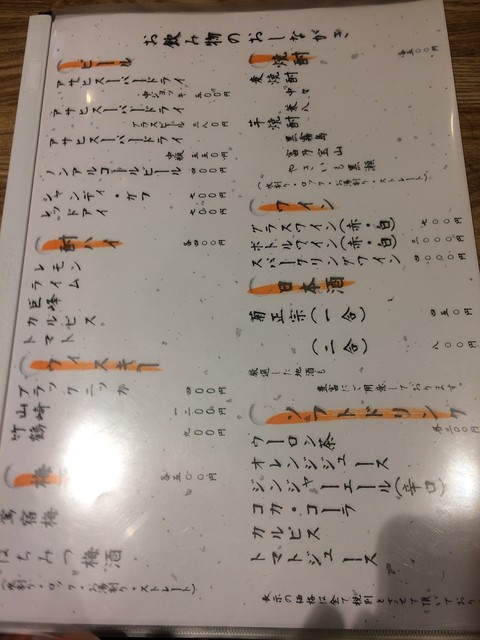 お飲み物のおしながき
ビール
アサヒスーパードライ
中ジョッキ 五〇〇円
アサヒスーパードライ
グラスビール 二八〇円
アサヒスーパードライ
中瓶 五五〇円
ノンアルコールビール 四〇〇円
シャンディ・ガフ 七〇〇円
レッドアイ 七〇〇円
酎ハイ 各四〇〇円
レモン
ライム
巨峰
カルピス
トマト
ウィスキー
ブラックニッカ 四〇〇円
竹鶴 一二〇〇円
山崎 九〇〇円
梅 各五〇〇円
鶯宿梅
はちみつ梅酒
(水割り・ロック・お湯割り・ストレート)
焼酎 各五〇〇円
麦焼酎
中々
兼八
芋焼酎
黒霧島
富乃宝山
やきいも黒瀬
(水割り・ロック・お湯割り・ストレート)
ワイン
グラスワイン(赤・白) 七〇〇円
ボトルワイン(赤・白) 三〇〇〇円
スパークリングワイン 四〇〇〇円
日本酒
菊正宗(一合) 四五〇円
(二合) 八〇〇円
厳選した地酒も
豊富にご用意しております
ソフトドリンク 各三〇〇円
ウーロン茶
オレンジジュース
ジンジャーエール(辛口)
コカ・コーラ
カルピス
トマトジュース
表示の価格は全て税別とさせて頂いており